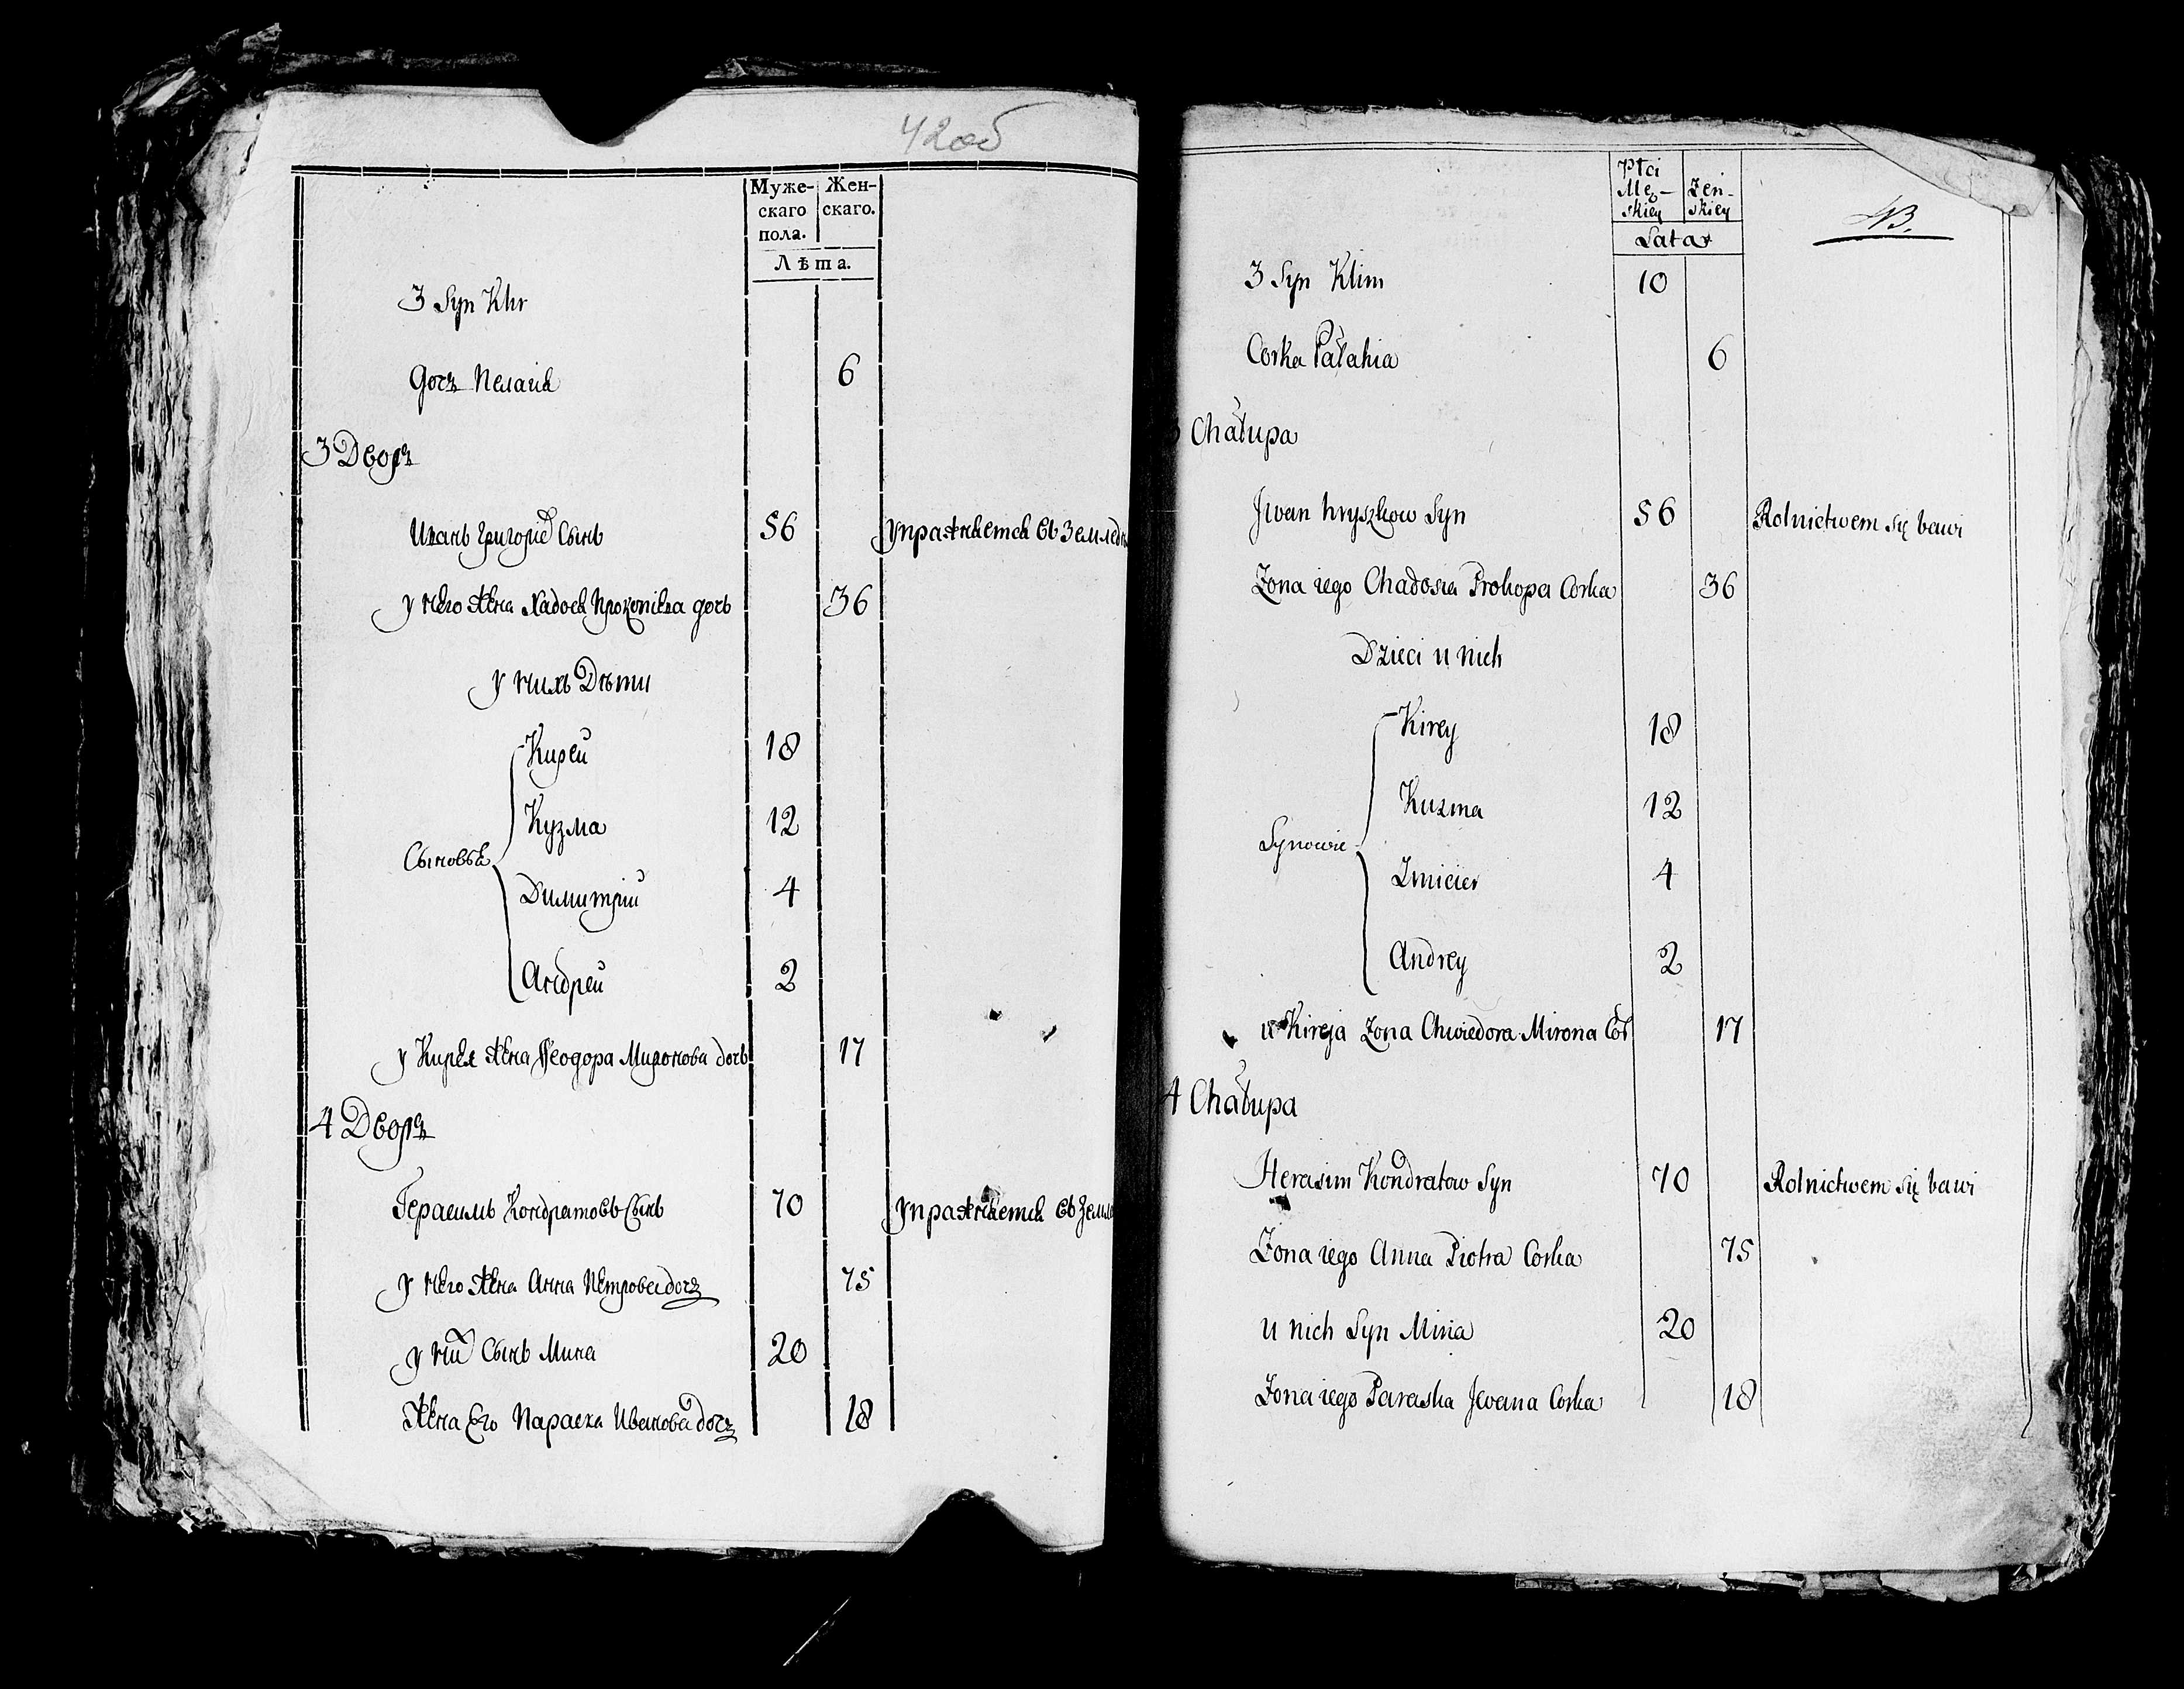 42об
Муже- Жен-
скаго скаго.
пола.
Лѣта.
3 Syn Klir
дочъ Пелагія 6
3 Дворъ
Иванъ Григорїе Сынъ 56 упражняется въ Землед
у него жена Хадося Прокопієва дочь 36
у нихъ Дѣти
Сыновья
Кирей 18
Кузма 12
Димитрій 4
Андрей 2
у Кирея жена Ѳеодора Миронова дочь 17
4 Дворъ
Герасимъ Кондратовъ Сынъ 70 упражняется въ Земле
у него жена Анна Петрова дочъ 75
у них Сынъ Мина 20
жена Его Параска Иванова дочъ 18
Płci
Męz- Zen-
skiey skiey
Lata
NB.
3 Syn Klim 10
Corka Pałahia 6
Chałupa
Jwan hryszkow Syn 56 Rolnictwem się bawi
Zona iego Chadosia Prokopa Corka 36
Dzieci u nich
Synowie
Kirey 18
Kuzma 12
Zmicier 4
Andrey 2
u Kireja Zona Chwiedora Mirona Cor 17
4 Chałupa
Herasim Kondratow Syn 70 Rolnictwem się bawi
Zona iego Anna Piotra Corka 75
u nich Syn Mina 20
Zona iego Paraska Jwana Corka 18